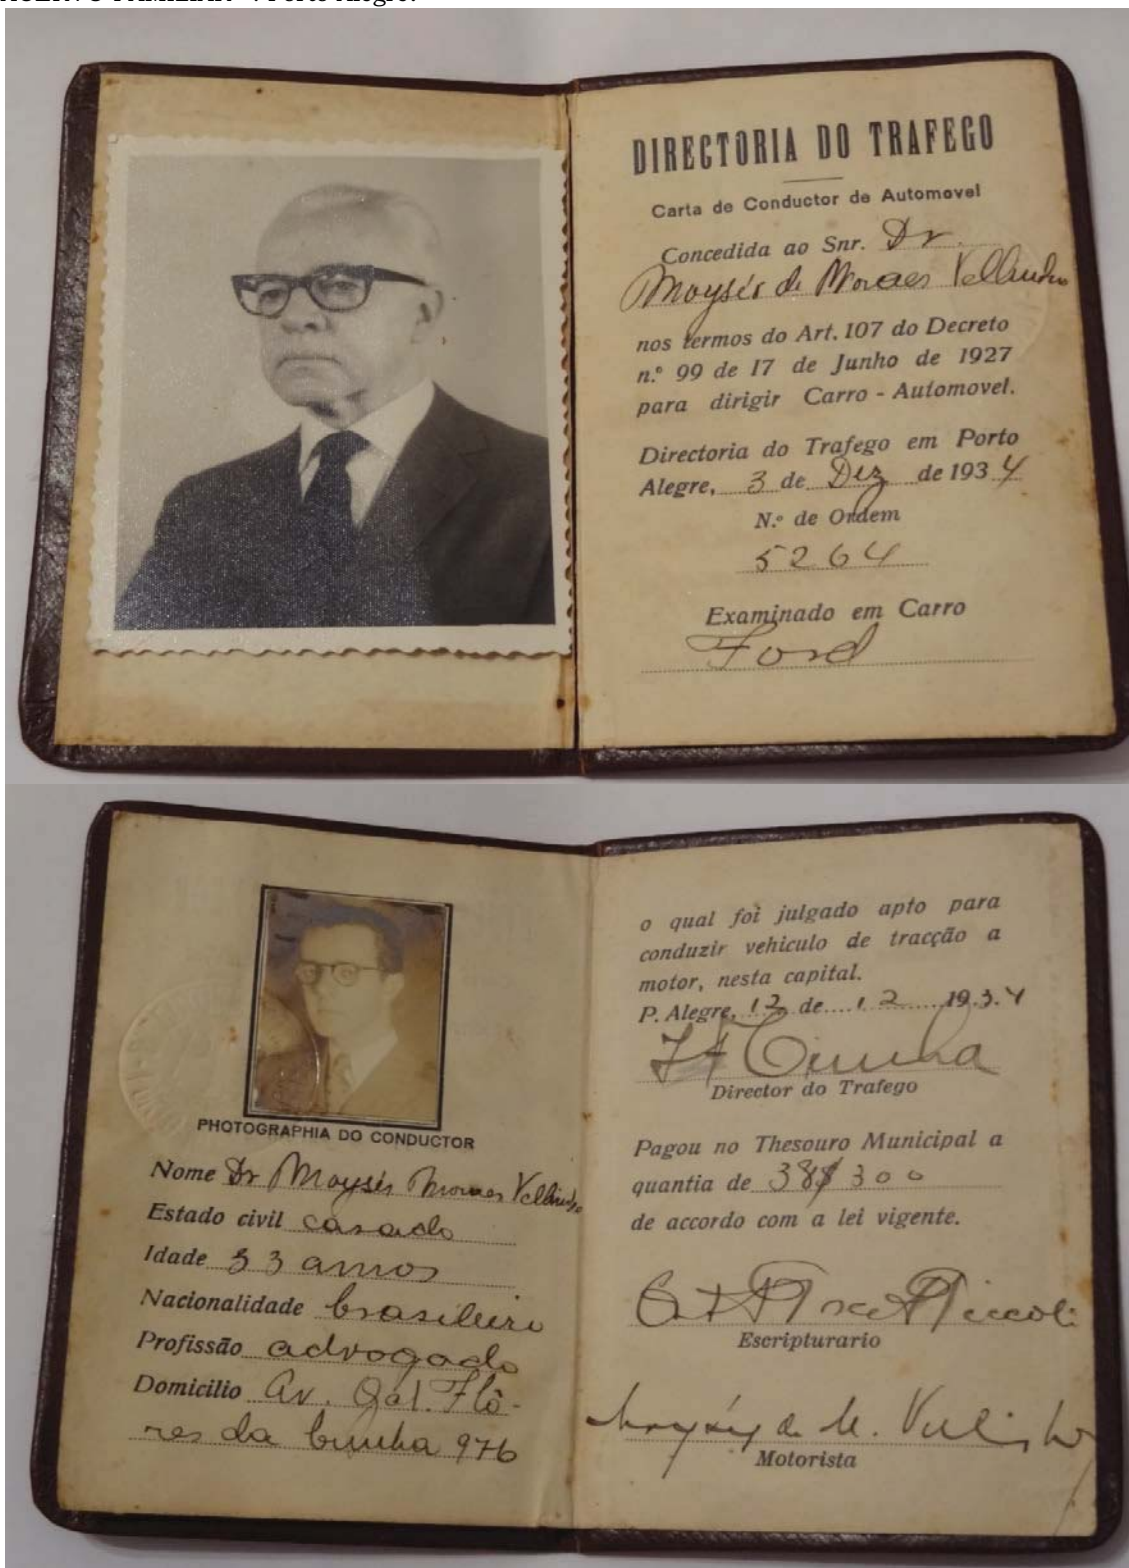 DIRECTORIA DO TRAFEGO
Carta de Conductor de Automovel
Concedida ao Snr. Dr.
Moysés de Moraes Vellinho
nos termos do Art. 107 do Decreto
n.º 99 de 17 de Junho de 1927
para dirigir Carro - Automovel.
Directoria do Trafego em Porto
Alegre, 3 de Dez de 1934
N.º de Ordem
5264
Examinado em Carro
Ford
PHOTOGRAPHIA DO CONDUCTOR
Nome Dr Moysés Moraes Vellinho
Estado civil casado
Idade 33 annos
Nacionalidade brasileiro
Profissão advogado
Domicilio Av. Gal. Flô-
res da Cunha 976
o qual foi julgado apto para
conduzir vehiculo de tracção a
motor, nesta capital.
P. Alegre, 12 de 12 1934
Cunha
Director do Trafego
Pagou no Thesouro Municipal a
quantia de 38$300
de accordo com a lei vigente.
Escripturario
Moysés de M. Vellinho
Motorista